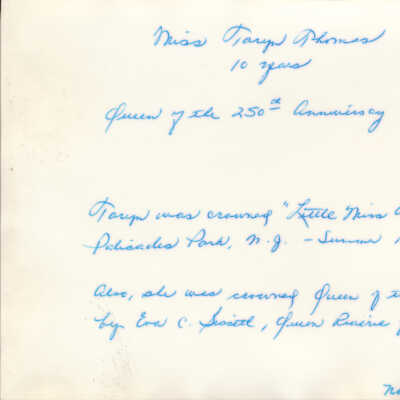 Miss Taryn Thomas
10 years
Queen of the 250th Anniversary
Taryn was crowned "Little Miss
Palisades Park, N.J. - Summer
Also, she was crowned Queen of
by Eva C. Queen